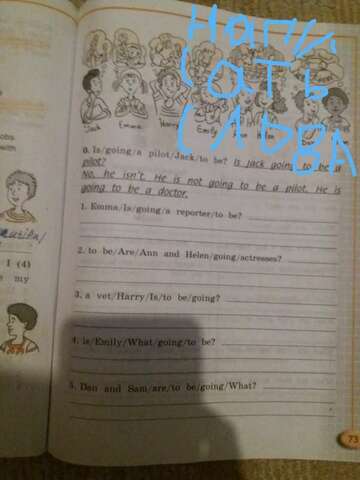 НАПИ
САТЬ
СЛЬВА
Jack
Emma
Harry
Emily
0. Is/going/a pilot/Jack/to be? Is Jack going to be a
pilot?
No, he isn't. He is not going to be a pilot. He is
going to be a doctor.
1. Emma/Is/going/a reporter/to be?
2. to be/Are/Ann and Helen/going/actresses?
3. a vet/Harry/Is/to be/going?
4. is/Emily/What/going/to be?
5. Dan and Sam/are/to be/going/What?
73
obs
with
1 (4)
my